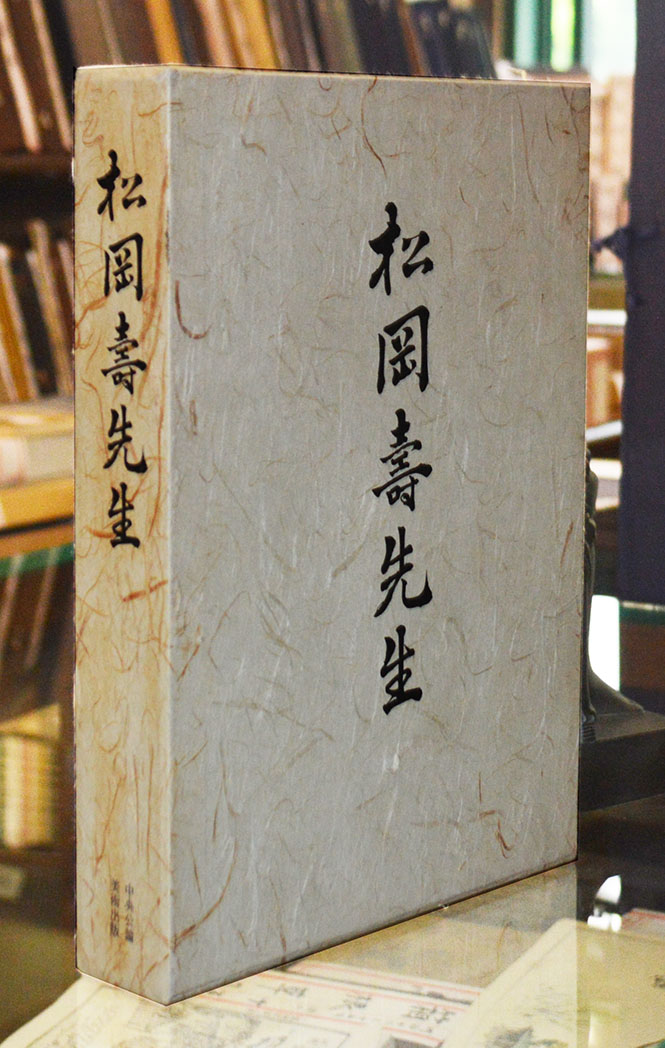 松岡壽先生
中央公論
美術出版
松岡壽先生